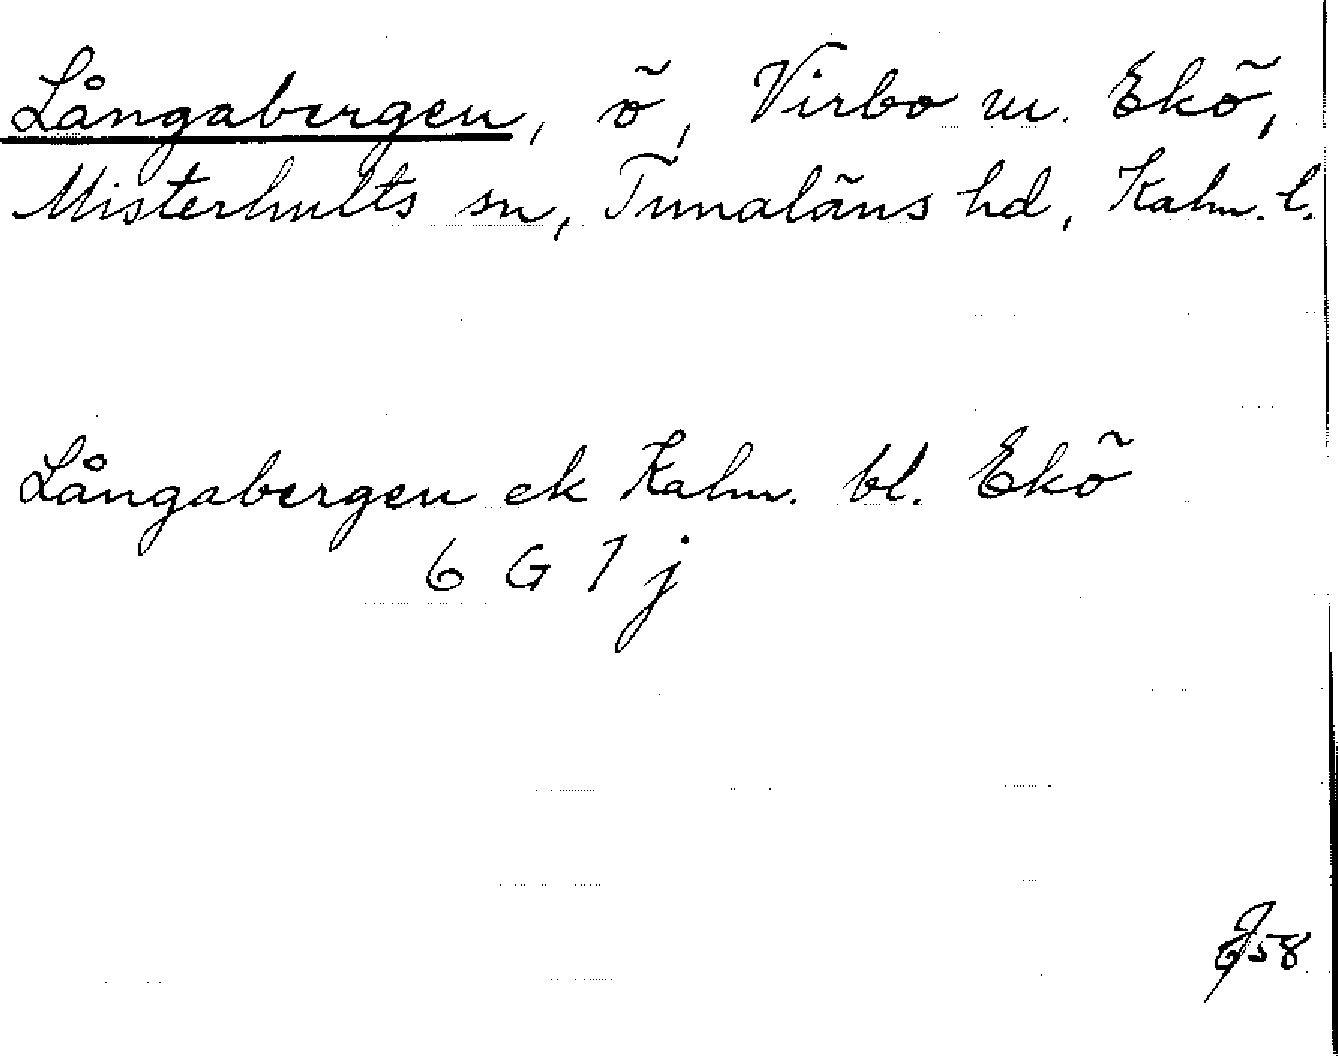 Långabergen, ö, Virbo m. Ekö,
Misterhults sn, Tunaläns hd, Kalm. l.
Långabergen ek Kalm. bl. Ekö
6 G 7 j
58